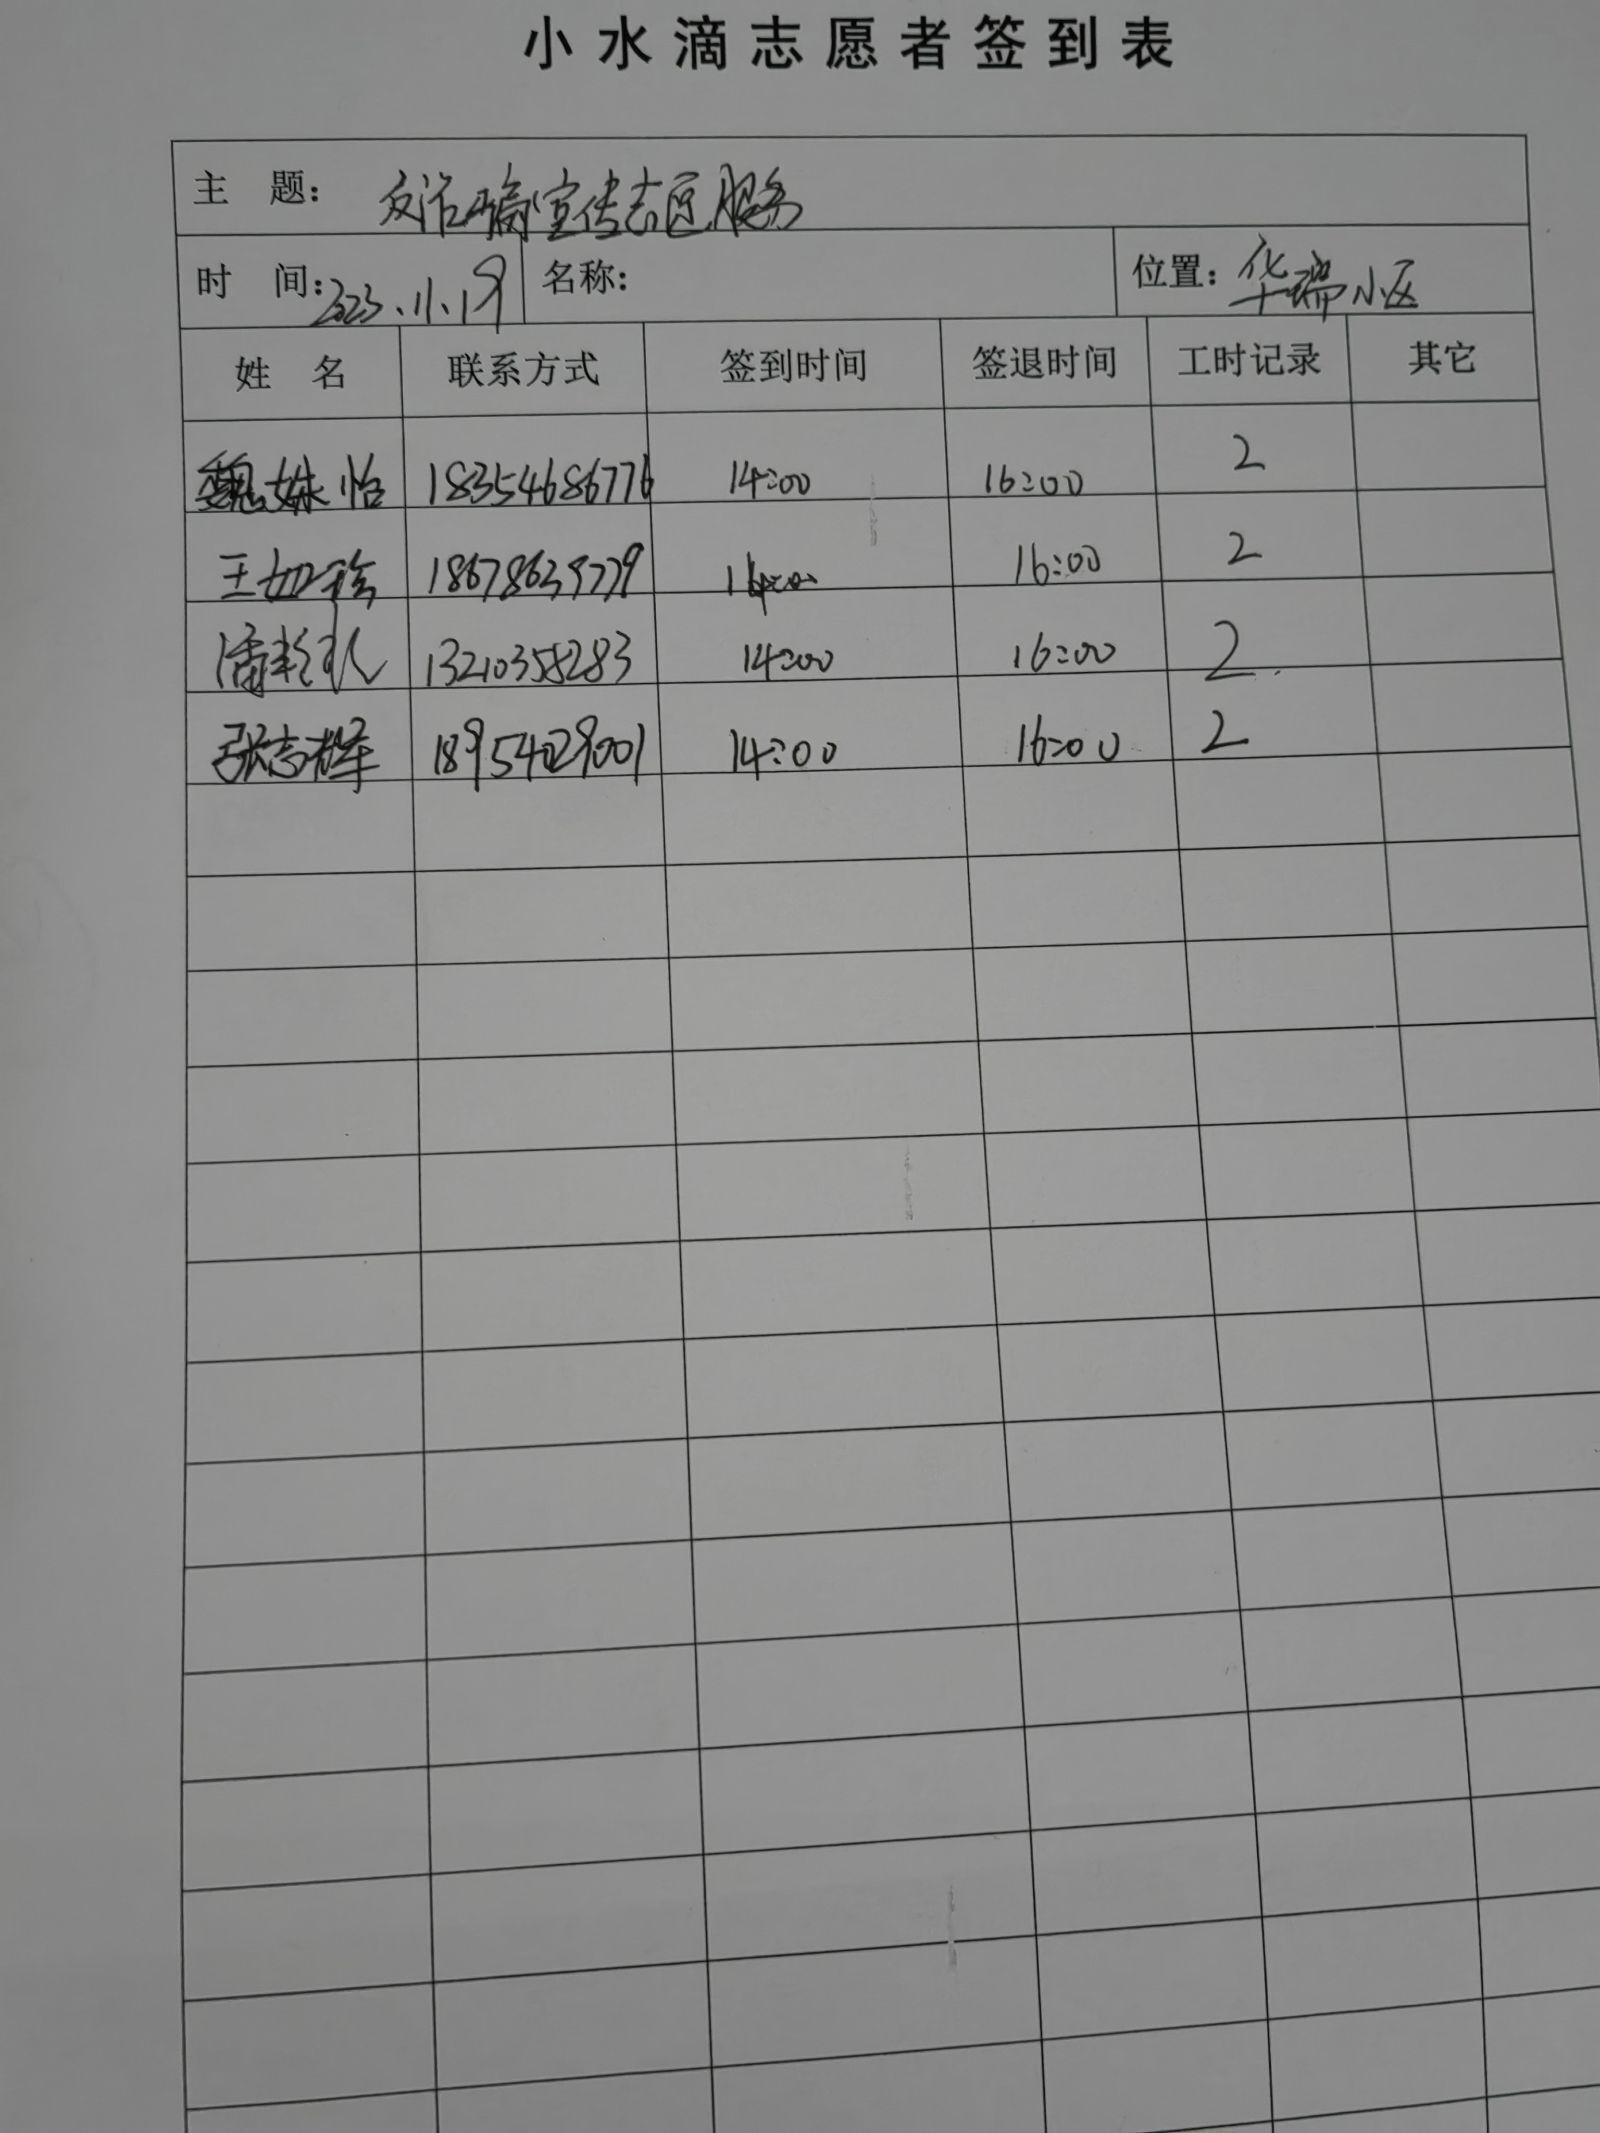 小水滴志愿者签到表
主 题: 反诈骗宣传志愿服务
时 间: 2023.11.19 名称: 位置: 华瑞小区
姓 名 联系方式 签到时间 签退时间 工时记录 其它
魏姝怡 18354686776 14:00 16:00 2
王如珍 18678639779 14:00 16:00 2
潘 13210358283 14:00 16:00 2
张志 18954029001 14:00 16:00 2